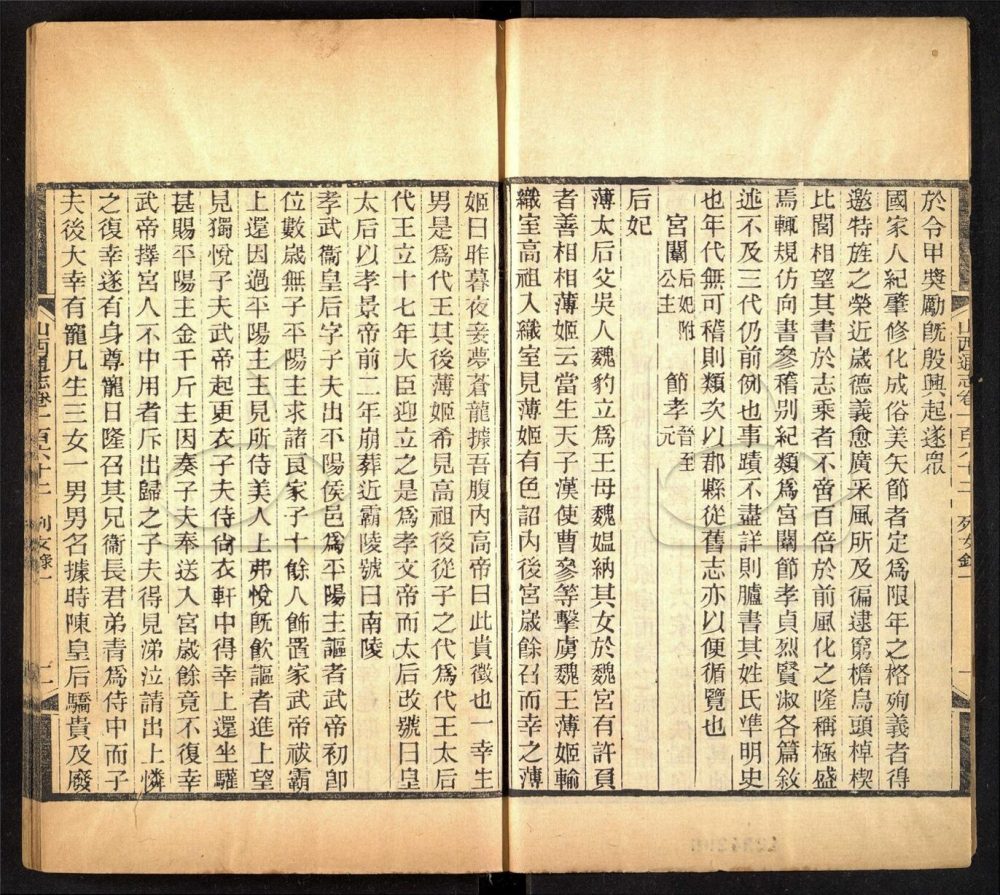 於令甲奬勵旣殷興起遂衆
國家人紀肇修化成俗美矢節者定爲限年之格殉義者得
邀特旌之榮近歲德義愈廣采風所及徧逮窮檐烏頭棹楔
比閭相望其書於志乘者不啻百倍於前風化之隆稱極盛
焉輒規仿向書參稽别紀類爲宮闈節孝貞烈賢淑各篇敘
述不及三代仍前例也事蹟不盡詳則臚書其姓氏準明史
也年代無可稽則類次以郡縣從舊志亦以便循覽也
宮闈后妃附公主　節孝晉至元
后妃
薄太后父吳人魏豹立爲王母魏媼納其女於魏宮有許負
者善相相薄姬云當生天子漢使曹參等擊虜魏王薄姬輸
織室高祖入織室見薄姬有色詔內後宮歲餘召而幸之薄
山西通志卷一百六十二　列女錄一　一
姬曰昨暮夜妾夢蒼龍據吾腹內高帝曰此貴徵也一幸生
男是爲代王其後薄姬希見高祖後從子之代爲代王太后
代王立十七年大臣迎立之是爲孝文帝而太后改號曰皇
太后以孝景帝前二年崩葬近霸陵號曰南陵
孝武衞皇后字子夫出平陽侯邑爲平陽主謳者武帝初卽
位數歲無子平陽主求諸良家子十餘人飾置家武帝祓霸
上還因過平陽主主見所侍美人上弗悅旣飲謳者進上望
見獨悅子夫武帝起更衣子夫侍尙衣軒中得幸上還坐驩
甚賜平陽主金千斤主因奏子夫奉送入宮歲餘竟不復幸
武帝擇宮人不中用者斥出歸之子夫得見涕泣請出上憐
之復幸遂有身尊寵日隆召其兄衞長君弟青爲侍中而子
夫後大幸有寵凡生三女一男男名據時陳皇后驕貴及廢